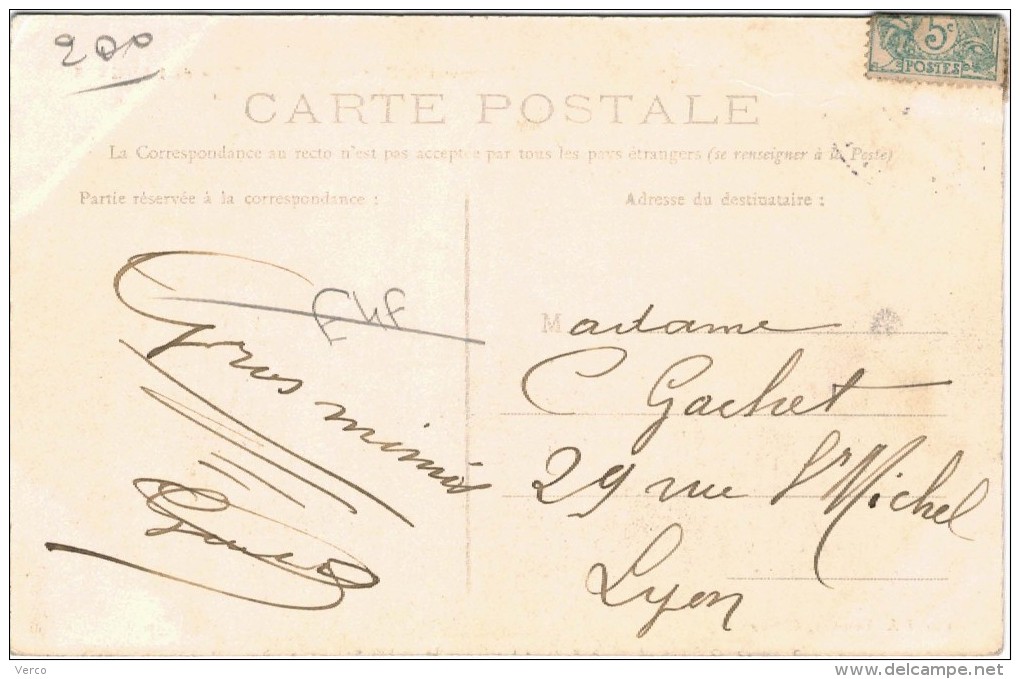 200
5c
POSTES
CARTE POSTALE
La Correspondance au recto n'est pas acceptée par tous les pays étrangers (se renseigner à la Poste)
Partie réservée à la correspondance :
Adresse du destinataire :
Gros mimis
Madame
C Gachet
29 rue St Michel
Lyon
Verco
http://www.delcampe.net